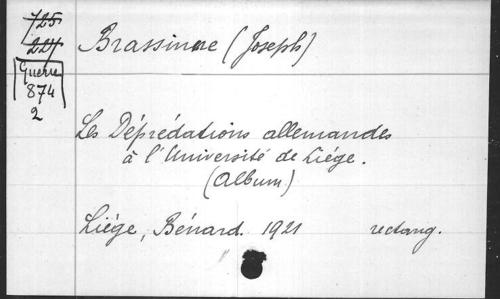 725
227
Guerre
874
2
Brassinne (Joseph)
Les Déprédations allemandes
à l'Université de Liége.
(Album)
Liége, Bénard. 1921 rectang.